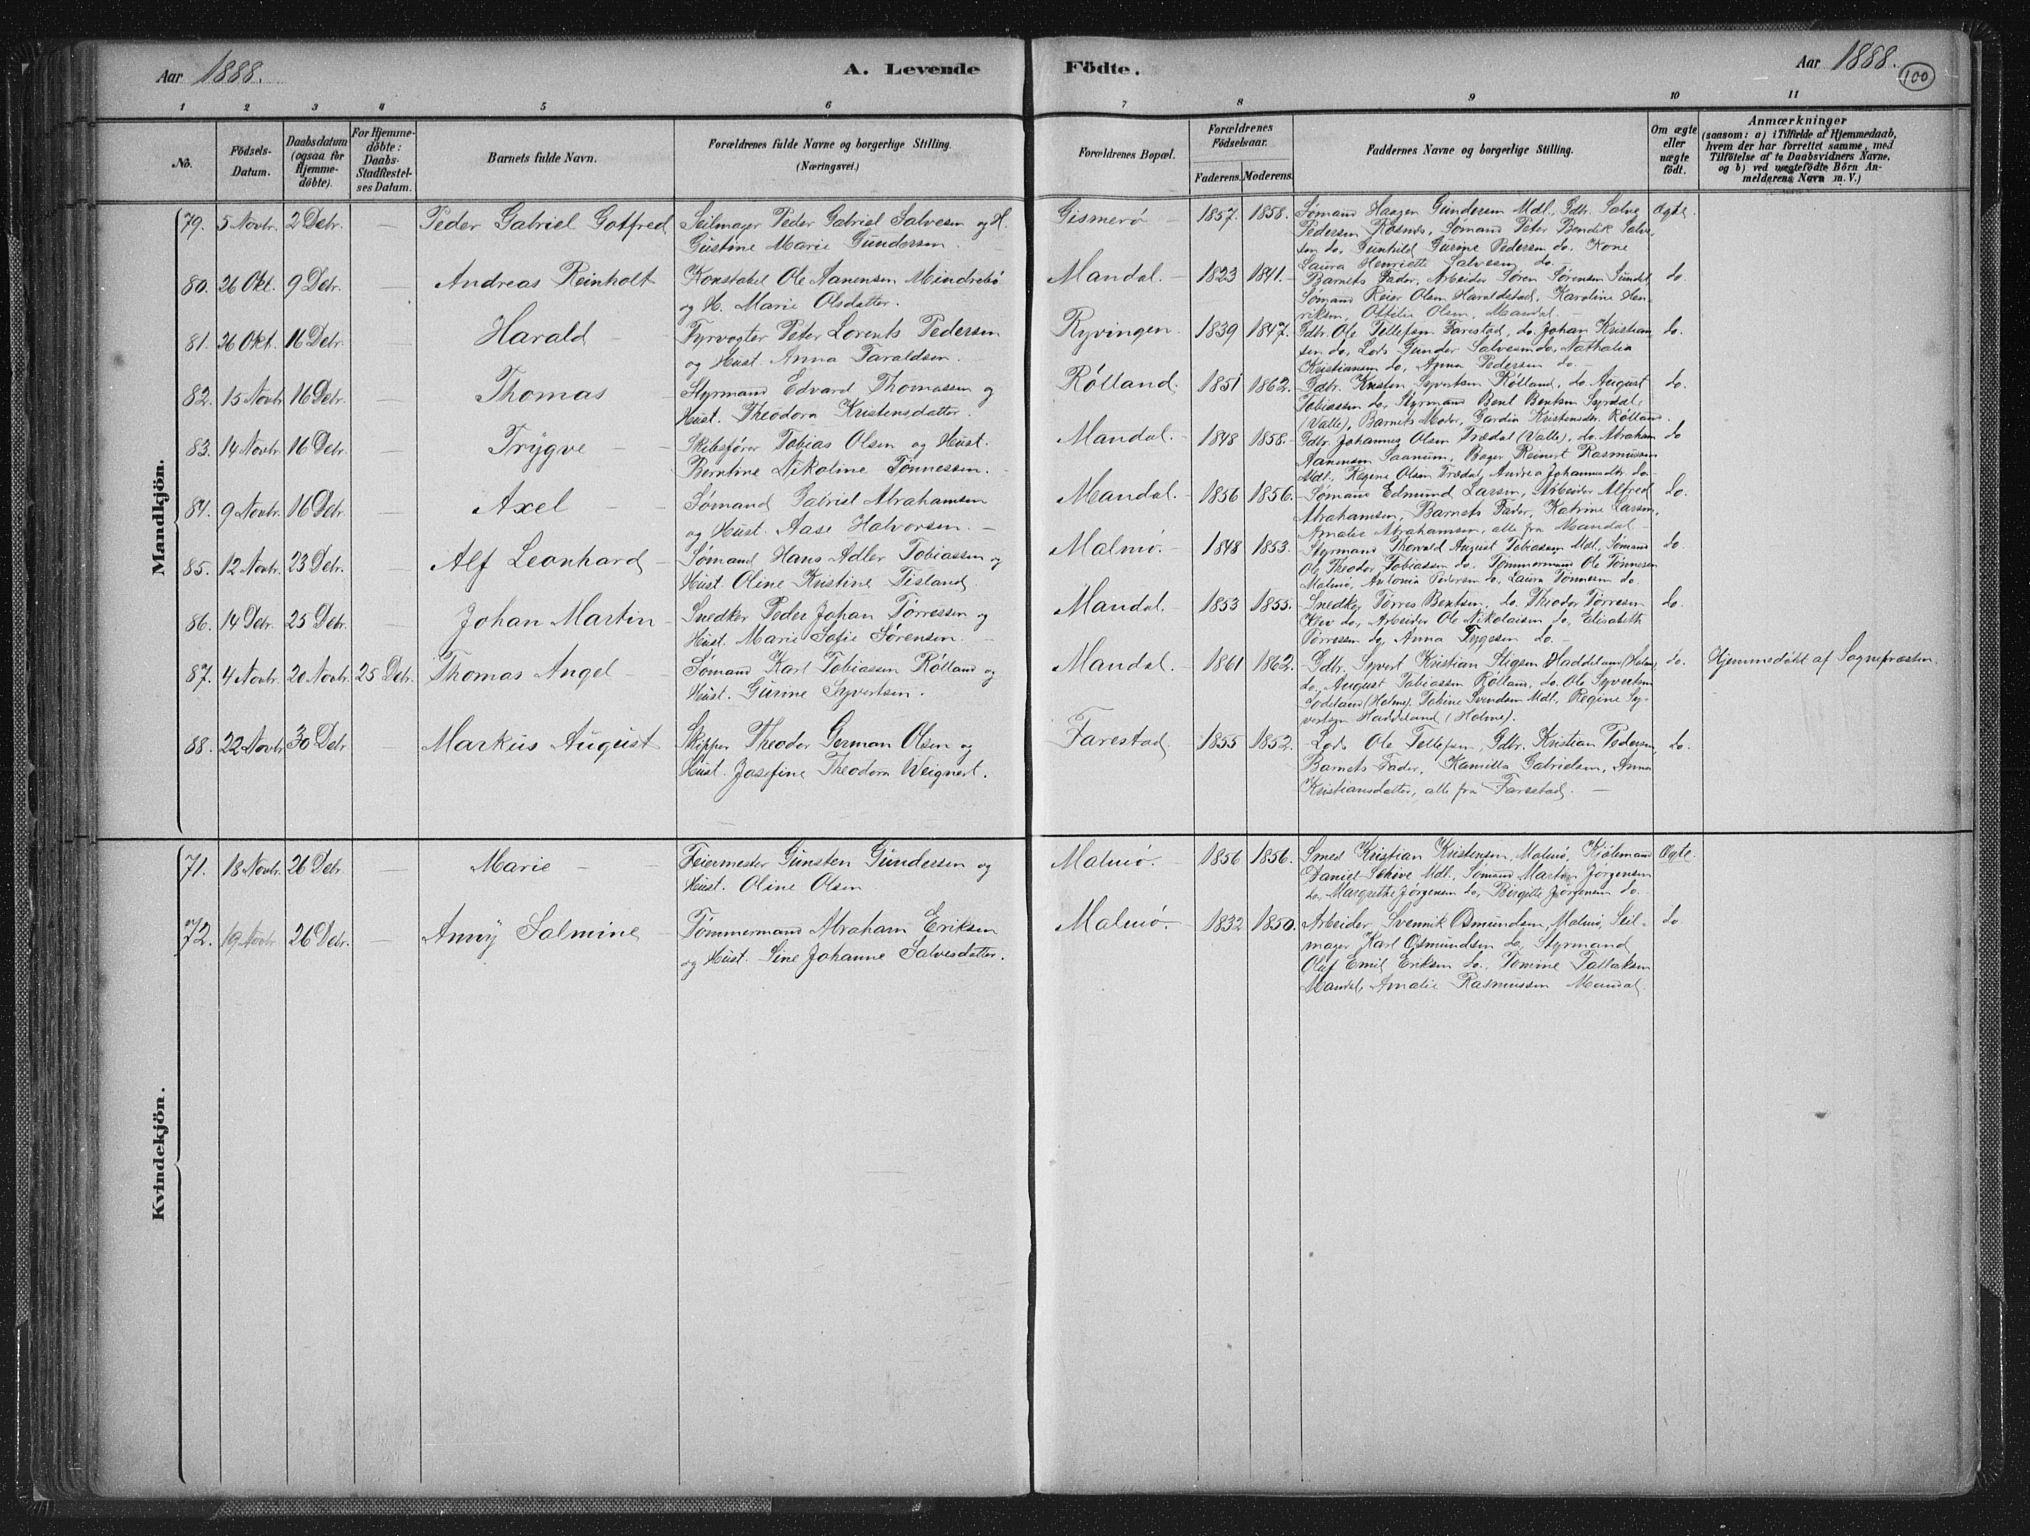 Aar 1888.
A. Levende
Födte.
Aar 1888.
100
1 2 3 4 5 6 7 8 9 10 11
No.
Födsels-Datum.
Daabsdatum (ogsaa for Hjemmedöbte).
For Hjemmedöbte: Daabs-Stadfestelses Datum.
Barnets fulde Navn.
Forældrenes fulde Navne og borgerlige Stilling.
(Næringsvei.)
Forældrenes Bopæl.
Forældrenes Födselsaar.
Faderens. Moderens.
Faddernes Navne og borgerlige Stilling.
Om ægte eller uægte födt.
Anmærkninger
(saasom: a) i Tilfælde af Hjemmedaab, hvem der har forrettet samme, med Tilföielse af to Daabsvidners Navne, og b) ved uægtefödte Börn Anmelderens Navn m. V.)
Mandkjön.
79. 5 Novbr. 2 Debr. — Peder Gabriel Gotfred Seilmager Peder Gabriel Salvesen og H. Gismerö — 1857. 1858. Sømand Haagen Gundersen Mdl., Gdbr. Salve Ægte
Gustine Marie Gundersen. Pedersen Røsnes, Sømand Peter Bendik Salve-
sen do, Gunhild Gurine Pedersen do. Kone
Laura Henriette Salvesen do —
80. 26 Okt. 9 Debr. — Andreas Reinholt Konstabel Ole Aanensen Mindrebö Mandal. — 1823 1841. Barnets Fader, Arbeider Sören Sörensen Sundt, do.
og H. Marie Olsdatter. Sømand Reier Olsen Haraldstad, Karoline Hen-
riksen, Ottilie Olsen, Mandal —
81. 26 Okt. 16 Debr. — Harald — Fyrvogter Peter Lorents Pedersen Ryvingen. 1839 1847. Gdbr. Ole Tellefsen Farestad, do. Johan Kristian do.
og Hust. Anna Taraldsen. sen do, Lods Gunder Salvesen do, Nathalia
Kristiansen do, Anna Pedersen do.
82. 15 Novbr. 16 Debr. — Thomas Styrmand Edvard Thomassen og Rölland. 1851 1862. Gdbr. Kristen Syvertsen Rölland, do August do.
Hust. Theodora Kristensdatter. Tobiassen do, Styrmand Bent Bentsen Syrdal,
(Valle), Barnets Moder, Gardia Kristensdtr. Rölland.
83. 14 Novbr. 16 Debr. — Trygve — Skibsförer Tobias Olsen og Hust. Mandal. — 1848 1858. Gdbr. Johannes Olsen Trædal (Valle), do. Abraham do
Berntine Nikoline Tönnessen. Aanensen Saanum, Bager Reinert Rasmussen
Mdl, Regine Olsen Trædal, Andrea Johannesdtr do.
84. 9 Novbr. 16 Debr. — Axel — Sømand Gabriel Abrahamsen Mandal. 1856 1856. Sømand Edmund Larsen, Arbeider Alfred do.
og Hust. Aase Halvorsen. — Abrahamsen, Barnets Fader, Katrine Larsen,
Amalie Abrahamsen, alle fra Mandal —
85. 12 Novbr. 23 Debr. — Alf Leonhard Sømand Hans Adler Tobiassen og Malmö. 1848 1853. Styrmand Thorvald August Tobiassen Mdl, Sømand do.
Hust. Oline Kristine Tisland. Ole Theodor Tobiassen do. Tömmermand Ole Tönnesen
Malmö, Antonia Pedersen do, Laura Tönnesen do
86. 14 Debr. 25 Debr. — Johan Martin Snedker Peder Johan Törressen og Mandal. — 1853 1855. Snedker Törres Bentsen, do. Theodor Törresen do.
Hust. Marie Sofie Sörensen. — Klev do, Arbeider Ole Nikolaisen do, Elisabeth
Törressen do, Anna Tygesen do. —
87. 4 Novbr. 20 Novbr. 25 Debr. Thomas Angel — Sømand Karl Tobiassen Rölland og Mandal. 1861 1862. Gdbr. Syvert Kristian Stigsen Haddeland (Holme) do. Hjemmedöbt af Sognepræsten.
Hust. Gurine Syvertsen. do, August Tobiassen Rölland, do. Ole Syvertsen
Sodeland (Holme), Tobine Svendsen Mdl, Regine Sy-
vertsen Haddeland (Holme).
88. 22 Novbr. 30 Debr. — Markus August Skipper Theodor German Olsen og Farestad 1855 1852. Lods Ole Tellefsen, Gdbr. Kristian Pedersen, do.
Hust. Josefine Theodora Weignert. Barnets Fader, Kamilla Gabrielsen, Anna
Kristiansdatter, alle fra Farestad. —
Kvindekjön.
71. 18 Novbr. 26 Debr. — Marie — Feiermester Gunsten Gundersen og Malmö. — 1856 1856. Smed Kristian Kristensen, Malmö, Kjöbmand Ægte.
Hust. Oline Olsen Daniel Scheve Mdl, Sømand Martin Jörgensen
do, Margrethe Jörgensen do, Birgitte Jörgensen do.
72. 19 Novbr. 26 Debr. — Anny Salmine Tömmermand Abraham Eriksen Malmö. — 1832 1850. Arbeider Svennik Osmundsen, Malmö, Seil- do.
og Hust. Sine Johanne Salvesdatter. mager Karl Osmundsen do, Styrmand
Oluf Emil Eriksen do., Tomine Tallaksen
Mandal, Amalie Rasmussen Mandal